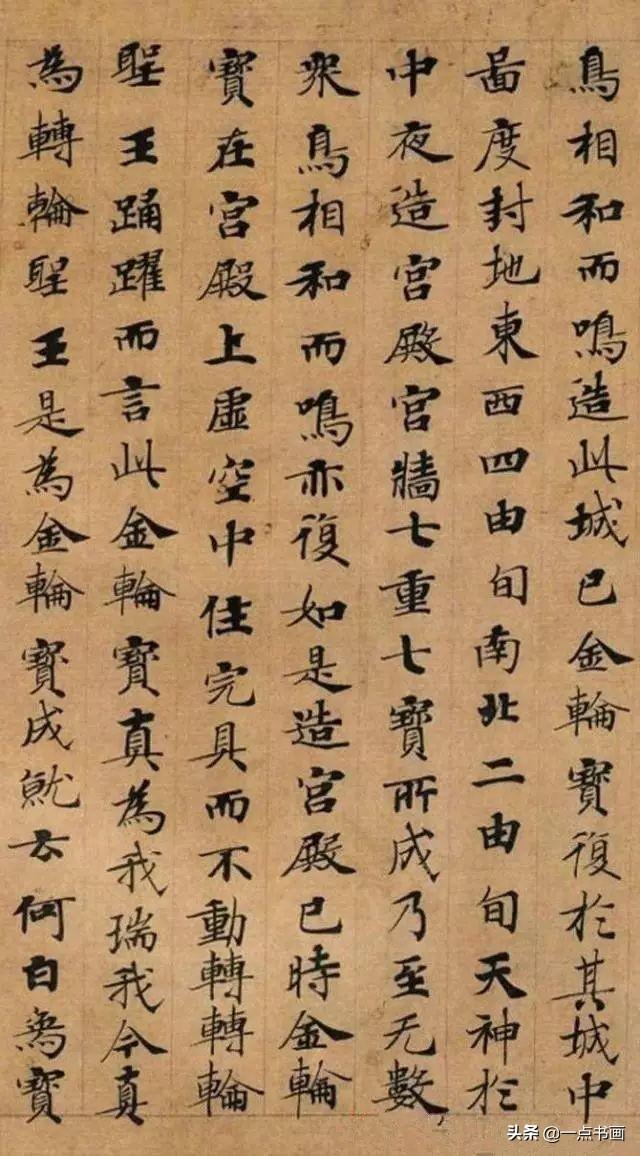 鳥相和而鳴造此城已金輪寶復於其城中
啚度封地東西四由旬南北二由旬天神於
中夜造宮殿宮牆七重七寶所成乃至无數
衆鳥相和而鳴亦復如是造宮殿已時金輪
寶在宮殿上虛空中住完具而不動轉轉輪
聖王踊躍而言此金輪寶真為我瑞我今真
為轉輪聖王是為金輪寶成就云何白象寶
头条 @一点书画